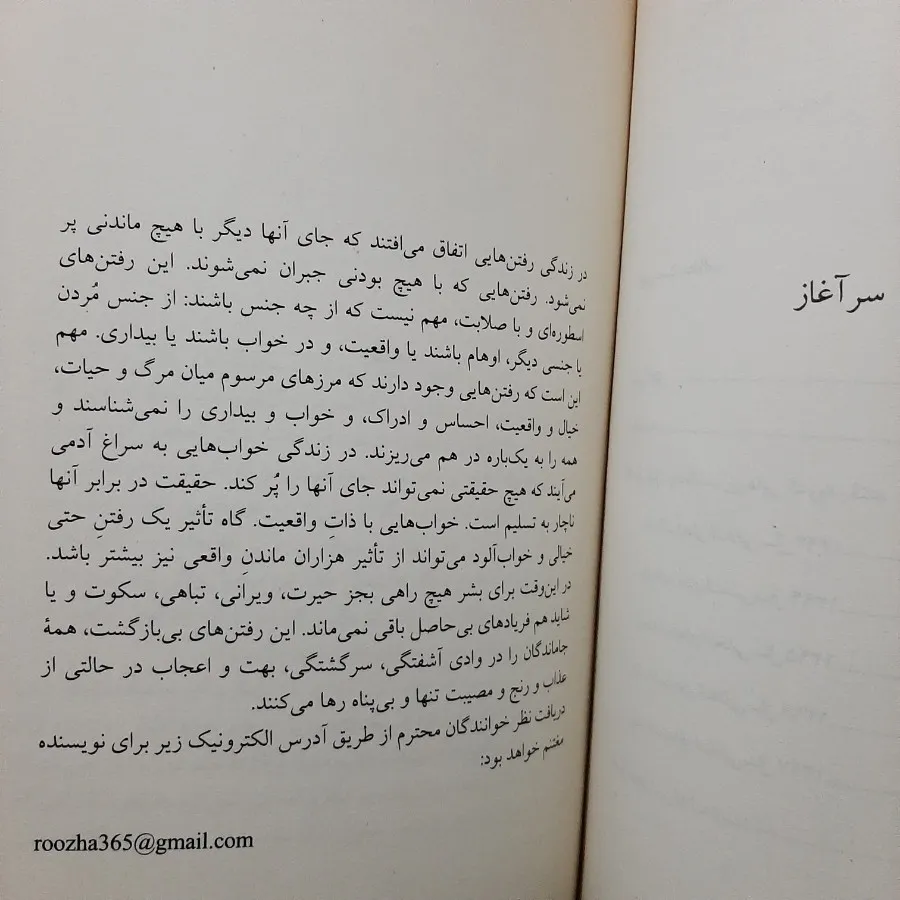 سر آغاز
در زندگی رفتن‌هایی اتفاق می‌افتند که جای آنها دیگر با هیچ ماندنی پر
نمی‌شود. رفتن‌هایی که با هیچ بودنی جبران نمی‌شوند. این رفتن‌های
اسطوره‌ای و با صلابت، مهم نیست که از چه جنس باشند: از جنس مُردن
یا جنسی دیگر، اوهام باشند یا واقعیت، و در خواب باشند یا بیداری. مهم
این است که رفتن‌هایی وجود دارند که مرزهای مرسوم میان مرگ و حیات،
خیال و واقعیت، احساس و ادراک، و خواب و بیداری را نمی‌شناسند و
همه را به یک‌باره در هم می‌ریزند. در زندگی خواب‌هایی به سراغ آدمی
می‌آیند که هیچ حقیقتی نمی‌تواند جای آنها را پُر کند. حقیقت در برابر آنها
ناچار به تسلیم است. خواب‌هایی با ذاتِ واقعیت. گاه تأثیر یک رفتنِ حتی
خیالی و خواب‌آلود می‌تواند از تأثیر هزاران ماندنِ واقعی نیز بیشتر باشد.
در این‌وقت برای بشر هیچ راهی بجز حیرت، ویرانی، تباهی، سکوت و یا
شاید هم فریادهای بی‌حاصل باقی نمی‌ماند. این رفتن‌های بی‌بازگشت، همهٔ
جاماندگان را در وادی آشفتگی، سرگشتگی، بهت و اعجاب در حالتی از
عذاب و رنج و مصیبت تنها و بی‌پناه رها می‌کنند.
دریافت نظر خوانندگان محترم از طریق آدرس الکترونیک زیر برای نویسنده
مغتنم خواهد بود:
roozha365@gmail.com